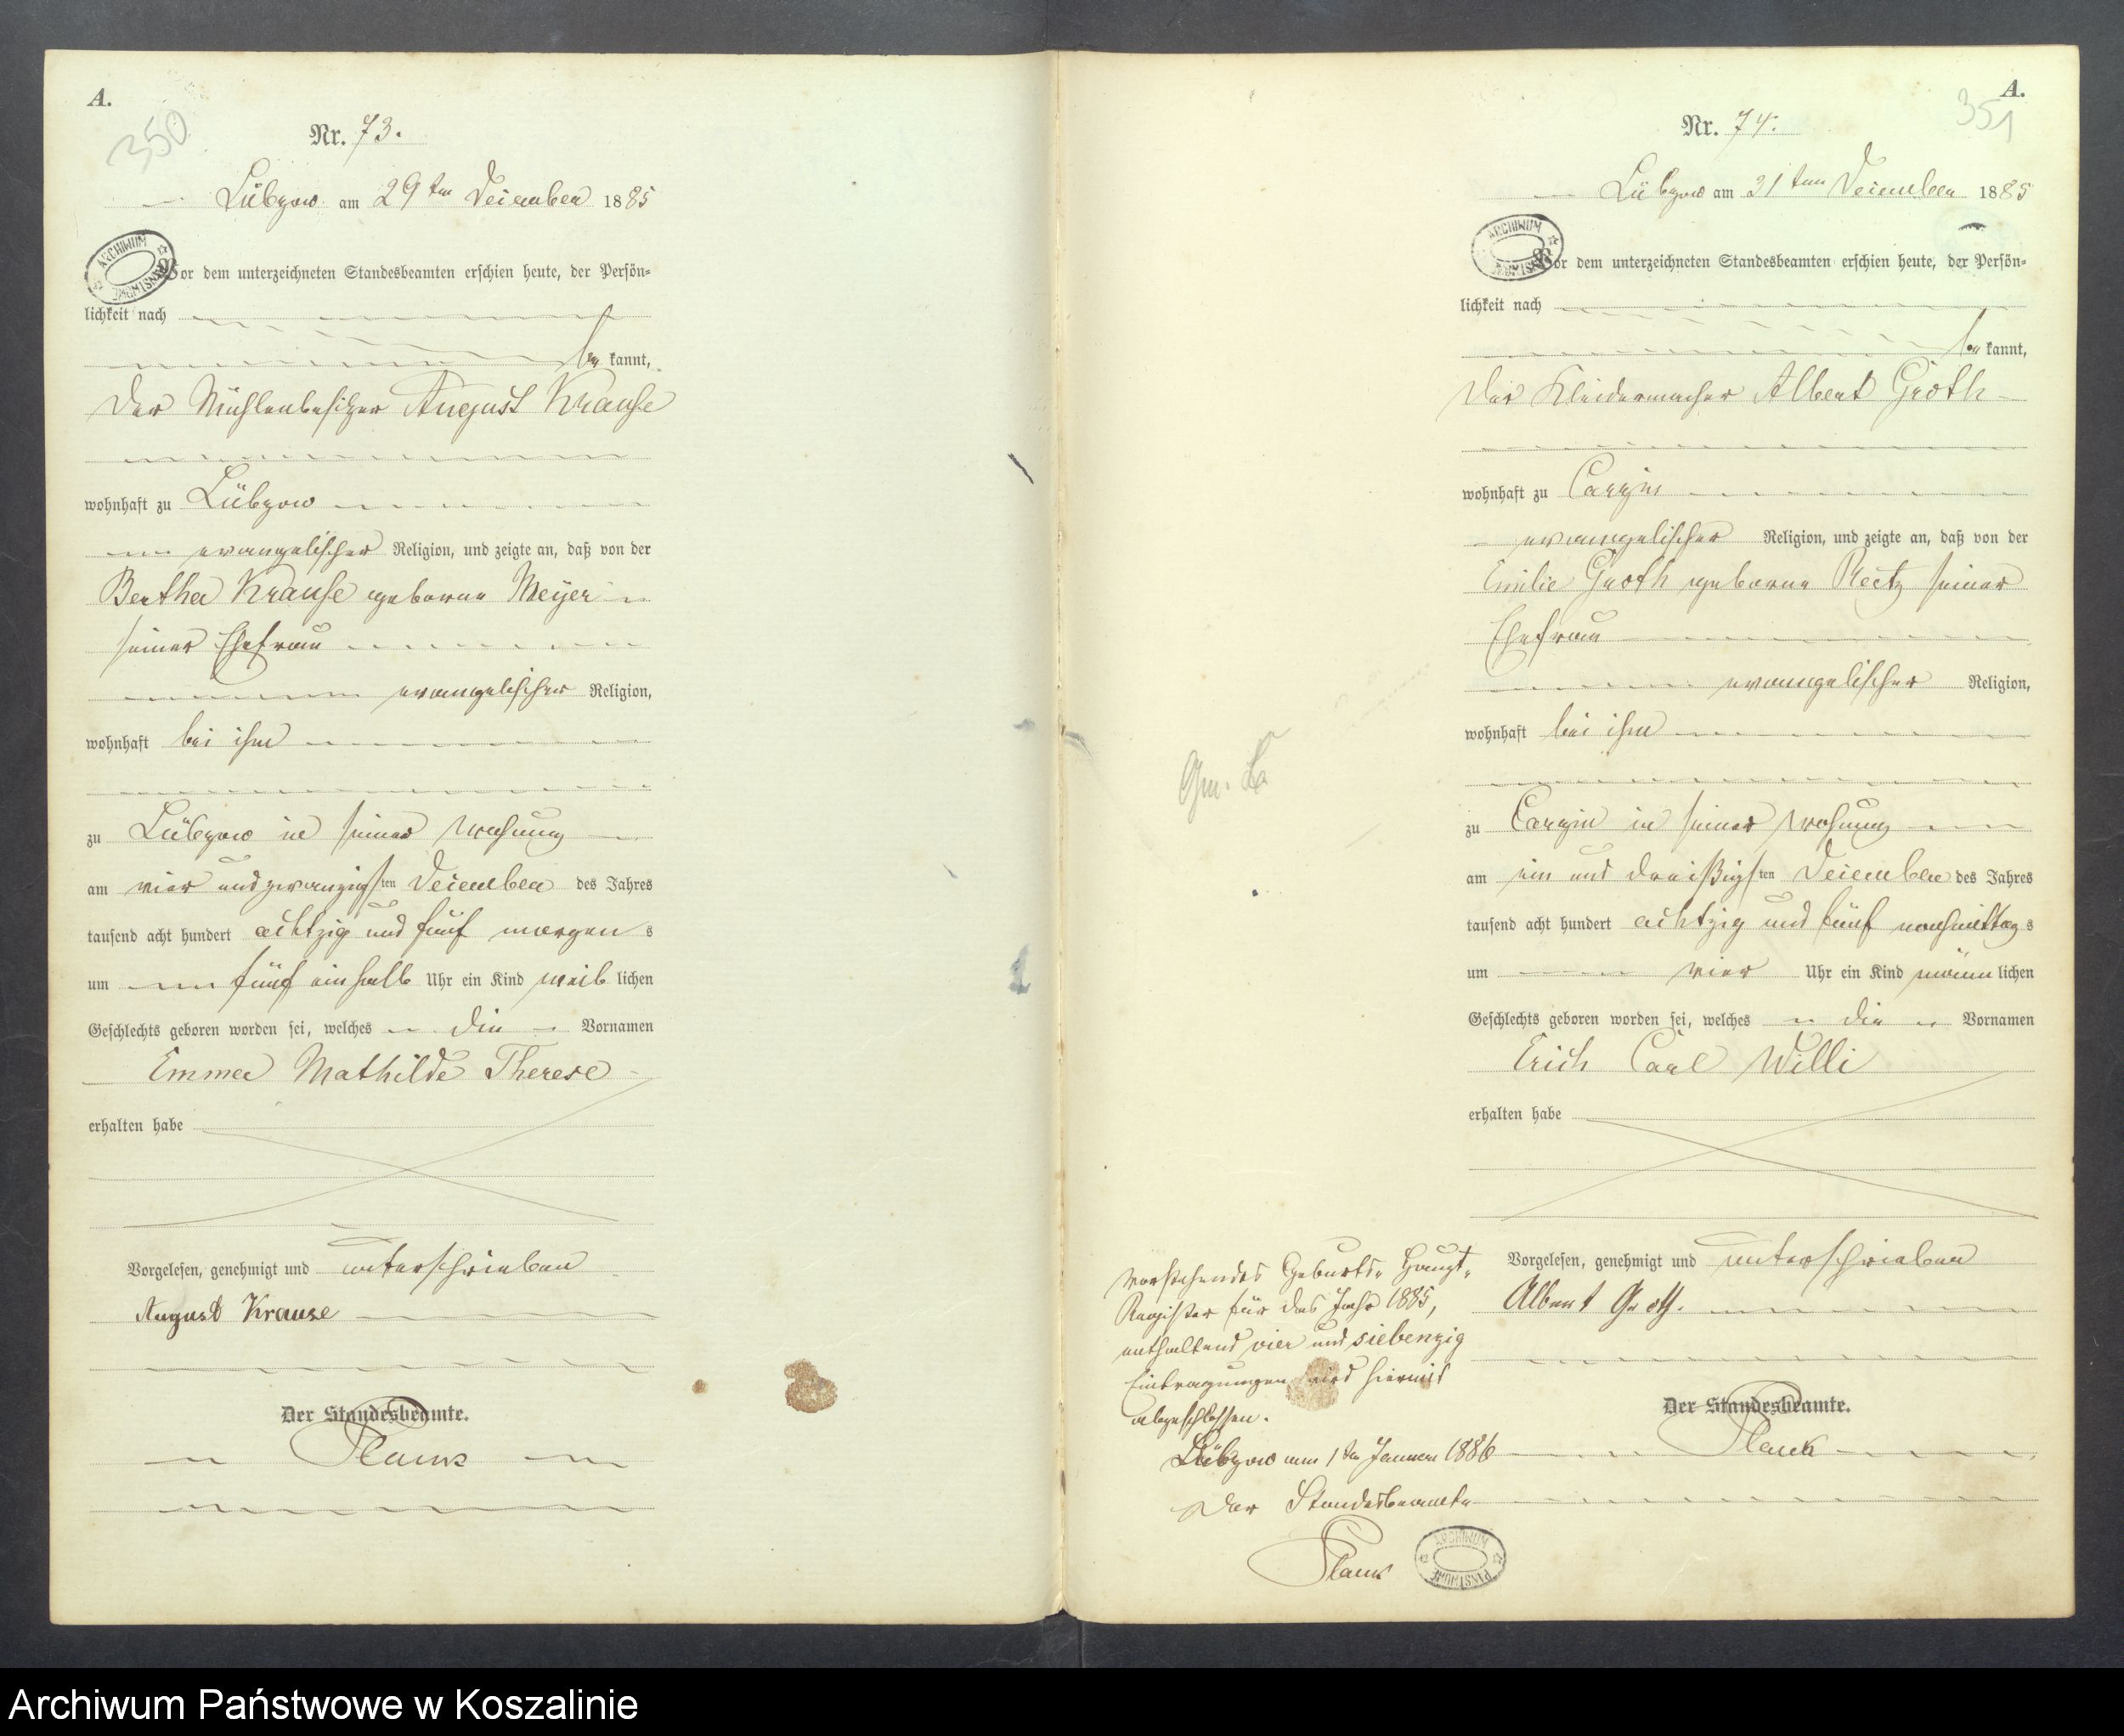 A.
350
Nr. 73.
Lübzow am 29ten December 1885
ARCHIWUM PAŃSTWOWE
Vor dem unterzeichneten Standesbeamten erschien heute, der Persön=
lichkeit nach
be kannt,
der Mühlenbesitzer August Krause
wohnhaft zu Lübzow
evangelischer Religion, und zeigte an, daß von der
Bertha Krause geborne Meyer
seiner Ehefrau
evangelischer Religion,
wohnhaft bei ihm
zu Lübzow in seiner Wohnung
am vier und zwanzigsten December des Jahres
tausend acht hundert achtzig und fünf morgens
um fünf ein halb Uhr ein Kind weiblichen
Geschlechts geboren worden sei, welches die Vornamen
Emma Mathilde Therese
erhalten habe
Vorgelesen, genehmigt und unterschrieben
August Krause
Der Standesbeamte.
A.
351
Nr. 74.
Lübzow am 31ten December 1885
ARCHIWUM PAŃSTWOWE
Vor dem unterzeichneten Standesbeamten erschien heute, der Persön=
lichkeit nach
be kannt,
der Kleidermacher Albert Groth
wohnhaft zu
evangelischer Religion, und zeigte an, daß von der
Emilie Groth geborne Reetz seiner
Ehefrau
evangelischer Religion,
wohnhaft bei ihm
zu in seiner Wohnung
am ein und dreißigsten December des Jahres
tausend acht hundert achtzig und fünf nachmittags
um vier Uhr ein Kind männlichen
Geschlechts geboren worden sei, welches die Vornamen
Erich Carl Willi
erhalten habe
Vorgelesen, genehmigt und unterschrieben
Albert Groth.
Der Standesbeamte.
Vorstehendes Geburts-Haupt-
Register für das Jahr 1885,
enthaltend vier und siebenzig
Eintragungen wird hiermit
abgeschlossen.
Lübzow am 1ten Januar 1886
Der Standesbeamte
ARCHIWUM PAŃSTWOWE
Archiwum Państwowe w Koszalinie